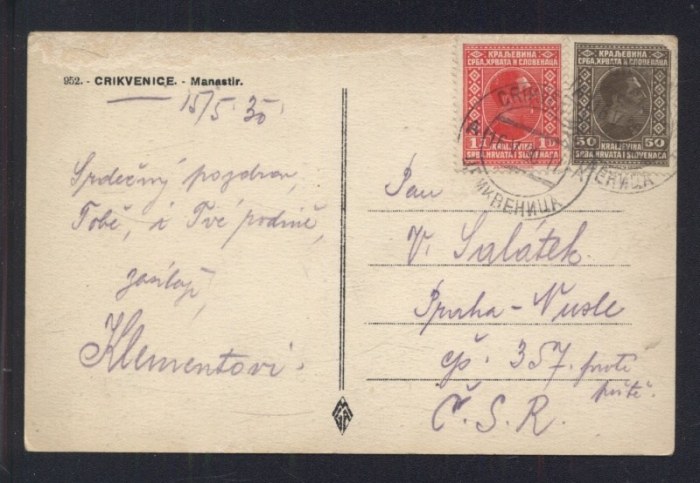 952. - CRIKVENICE. - Manastir.
15/5 30
Srdečný pozdrav,
Tobě, i Tvé rodině,
zasílají,
Klementovi.
КРАЉЕВИНА
СРБА, ХРВАТА И СЛОВЕНАЦА
1Д 1D
KRALJEVINA
SRBA, HRVATA I SLOVENACA
КРАЉЕВИНА
СРБА, ХРВАТА И СЛОВЕНАЦА
50 50
KRALJEVINA
SRBA, HRVATA I SLOVENACA
ЦРИКВЕНИЦА
Pan
V. Salátek.
Praha - Nusle
čp. 357. proti
poště.
Č. S. R.